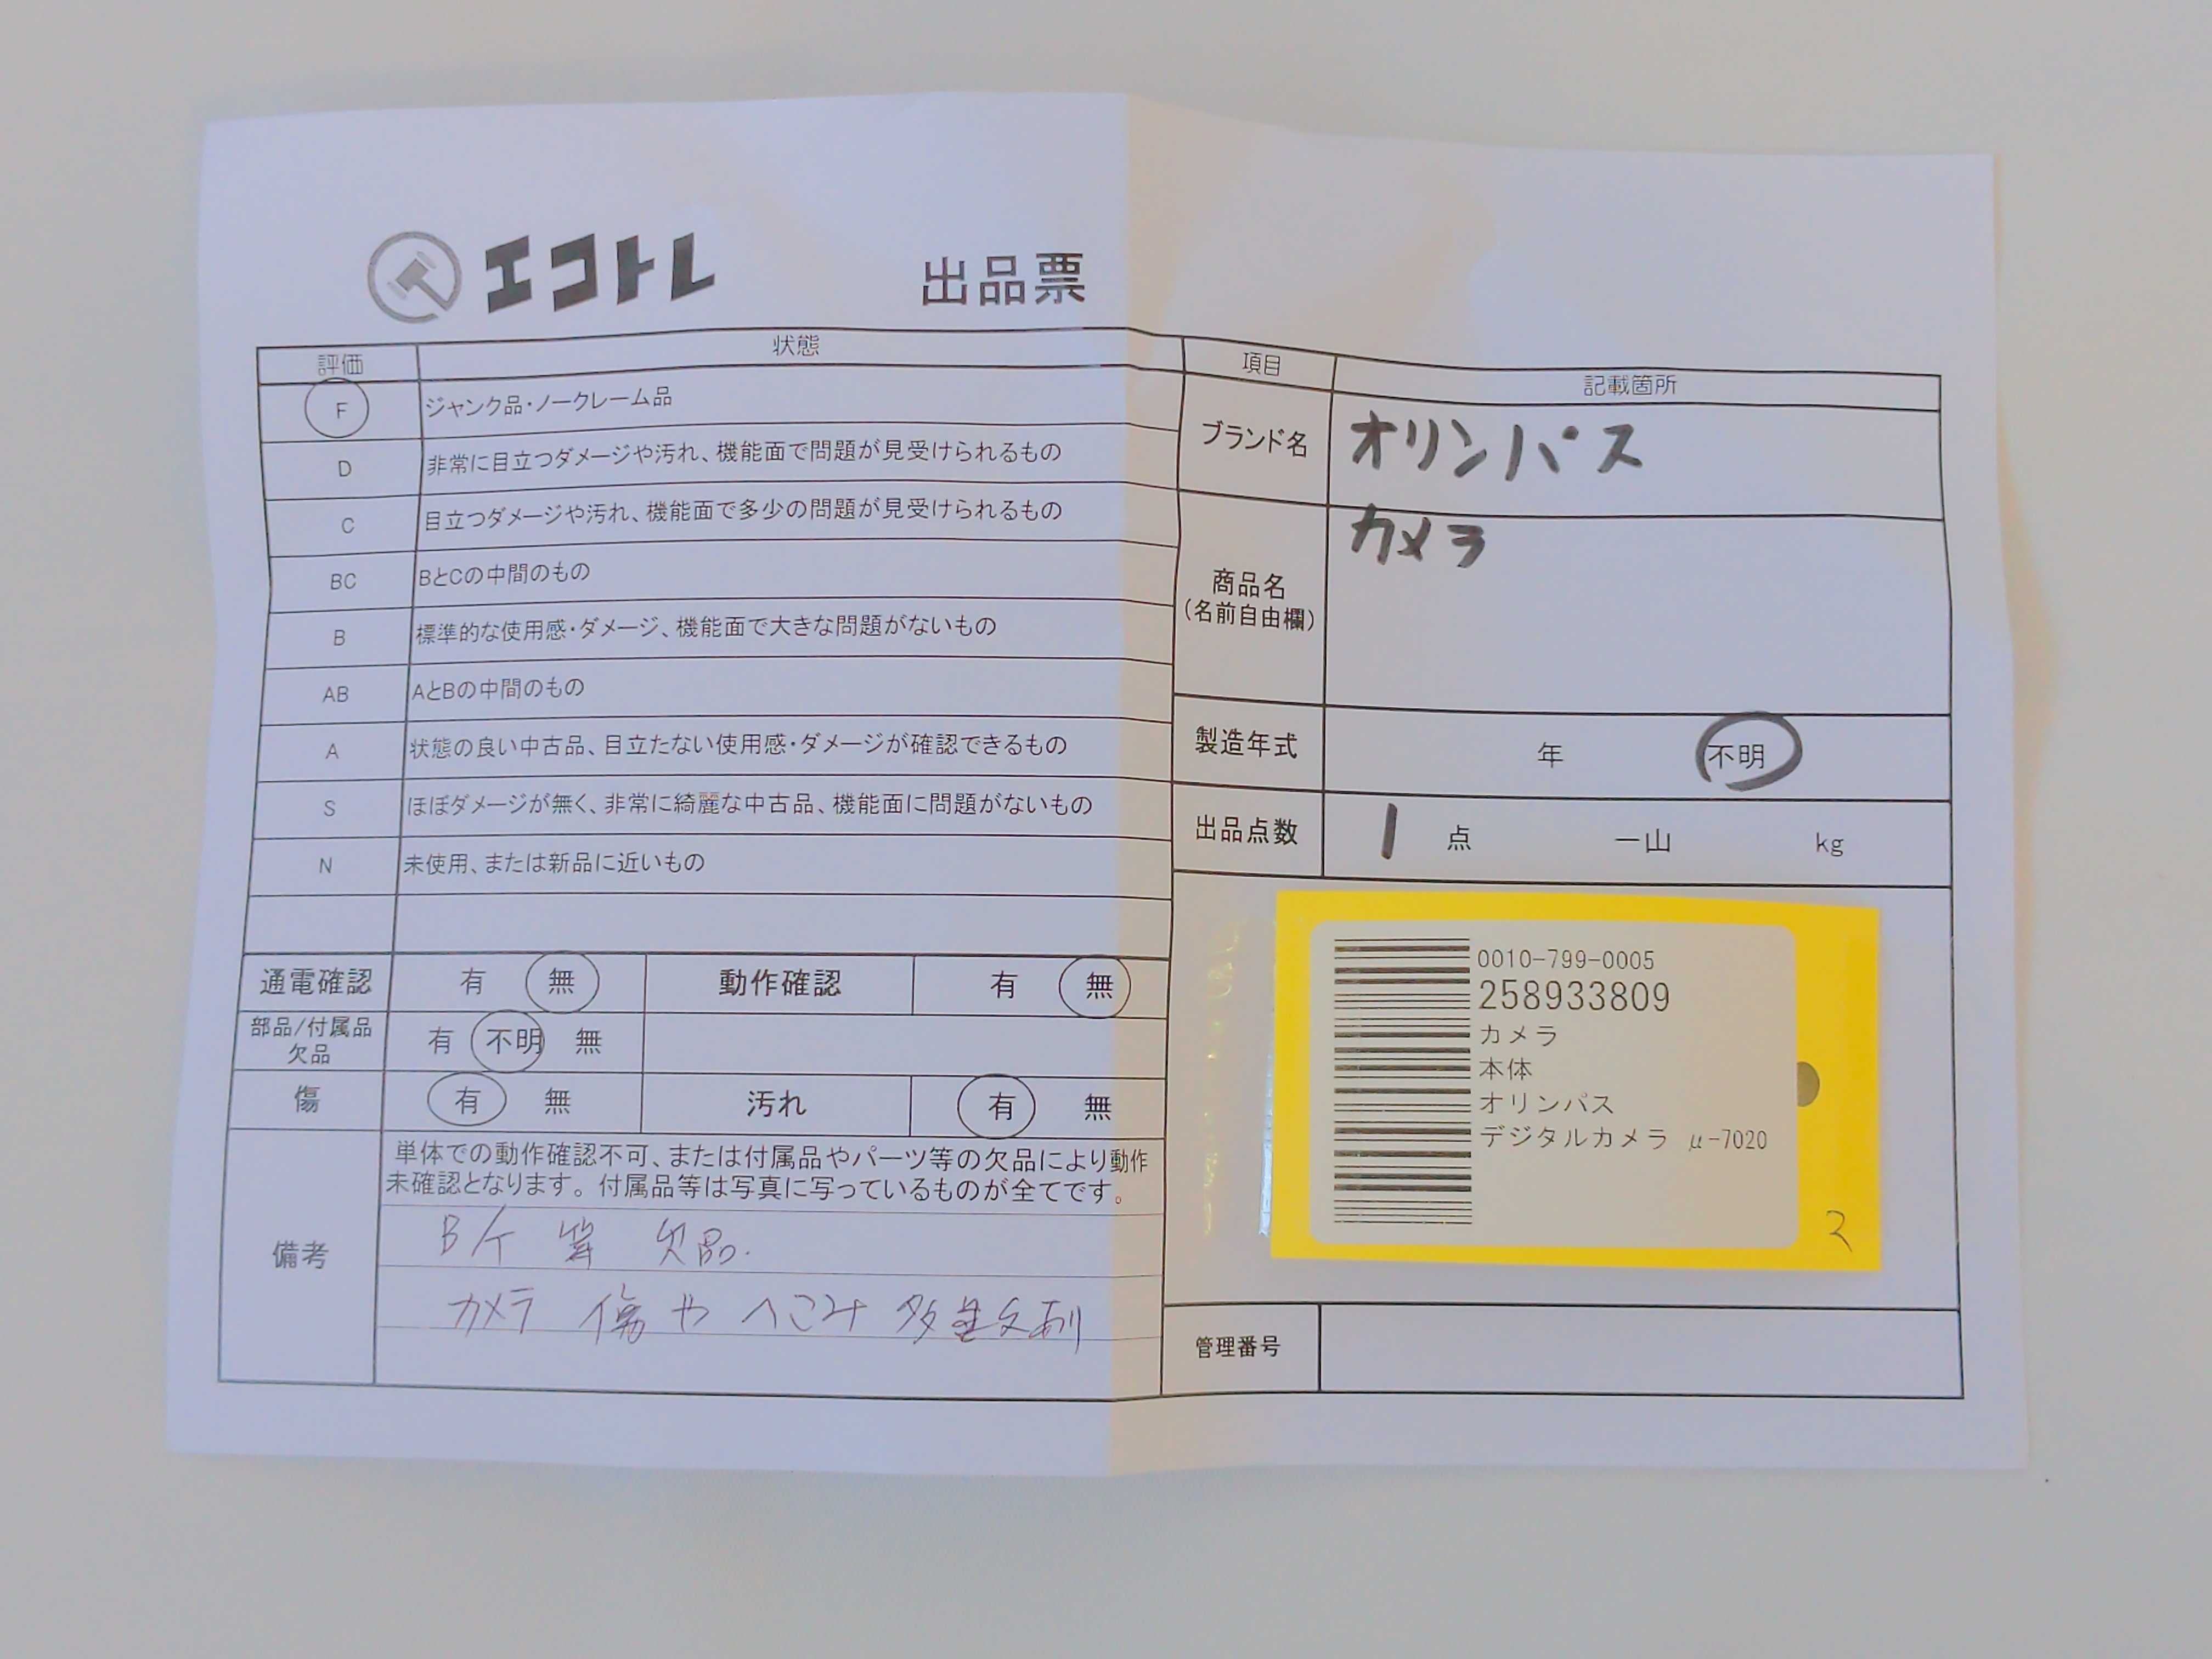 エコトレ 出品票
評価 状態
F ジャンク品・ノークレーム品
D 非常に目立つダメージや汚れ、機能面で問題が見受けられるもの
C 目立つダメージや汚れ、機能面で多少の問題が見受けられるもの
BC BとCの中間のもの
B 標準的な使用感・ダメージ、機能面で大きな問題がないもの
AB AとBの中間のもの
A 状態の良い中古品、目立たない使用感・ダメージが確認できるもの
S ほぼダメージが無く、非常に綺麗な中古品、機能面に問題がないもの
N 未使用、または新品に近いもの
通電確認 有 無 動作確認 有 無
部品/付属品
欠品
有 不明 無
傷 有 無 汚れ 有 無
備考
単体での動作確認不可、または付属品やパーツ等の欠品により動作
未確認となります。付属品等は写真に写っているものが全てです。
B/ケ 等 欠品.
カメラ 傷や へこみ 多数あり
項目 記載箇所
ブランド名 オリンパス
商品名
(名前自由欄)
カメラ
製造年式 年 不明
出品点数 1 点 一山 kg
0010-799-0005
258933809
カメラ
本体
オリンパス
デジタルカメラ μ-7020
管理番号